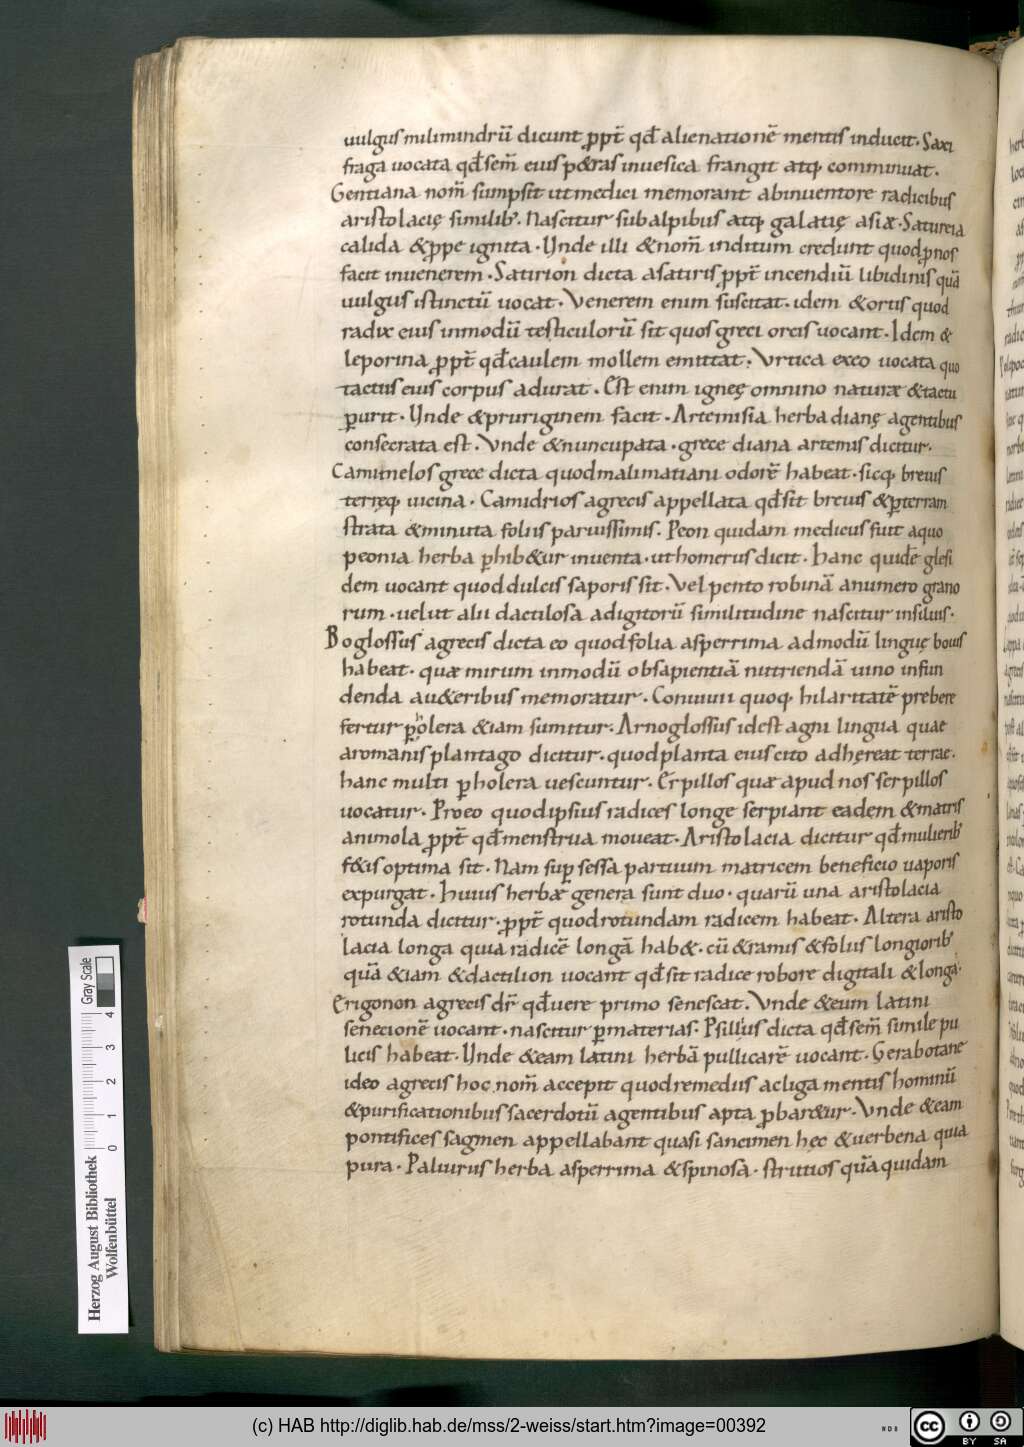 uulgus milimindrū dicunt ꝓpt̄ qđ alienationē mentis inducit · Saxi
fraga uocata qđ sem̄ eius p&ras inuesica frangit atq; comminuat ·
Gentiana nom̄ sumpsit ut medici memorant abinuentore radicibus
aristolacię similib; · Nascitur subalpibus atq; galatię asiæ · Satureia
calida &ꝓpe ignita · Unde illi &nom̄ inditum credunt quod ꝓnos
facit inuenerem · Satirion dicta asatiris ꝓpt̄ incendiū libidinis quā
uulgus istinctū uocat · Venerem enim suscitat · idem &ortis quod
radix eius inmodū testiculorū sit quos greci orcis uocant · Idem &
leporina ꝓpt̄ qđ caulem mollem emittat · Vrtica exeo uocata quo
tactus eius corpus adurat · Est enim igneę omnino naturæ &tactu
ꝑurit · Unde &pruriginem facit · Artemisia herba dianę agentibus
consecrata est · Vnde &nuncupata · grece diana artemis dicitur ·
Camimelos grece dicta quod malimatiani odorē habeat · sicq; breuis
terręq; uicina · Camidrios agrecis appellata qđ sit breuis &ꝑterram
strata &minuta foliis paruissimis · Peon quidam medicus fuit aquo
peonia herba ꝑhib&ur inuenta · ut homerus dicit · Hanc quidē glesi
dem uocant quod dulcis saporis sit · Vel pento robinā anumero grano
rum · uelut alii dactilosa adigitorū similitudine nascitur insiluis ·
Boglossus agrecis dicta eo quod folia asperrima admodū linguę bouis
habeat · quæ mirum inmodū obsapientiā nutriendā uino infun
denda au&eribus memoratur · Conuiuii quoq; hilaritatē prebere
fertur ꝑ holera &iam sumitur · Arnoglossus idest agni lingua quae
aromanis plantago dicitur · quod planta eius cito adhęreat terrae ·
hanc multi ꝑ holera uescuntur · Erpillos quæ apud nos serpillos
uocatur · Proeo quod ipsius radices longe serpiant eadem &matris
animola ꝓpt̄ qđ menstrua moueat · Aristolacia dicitur qđ mulierib;
f&is optima sit · Nam suꝑ sessa partuum matricem beneficio uaporis
expurgat · Huius herbæ genera sunt duo · quarū una aristolacia
rotunda dicitur · ꝓpt̄ quod rotundam radicem habeat · Altera aristo
lacia longa quia radicē longā hab& · cū &ramis &foliis longiorib;
quā &iam &dactilion uocant qđ sit radice robore digitali &longa ·
Erigonon agrecis dr̄ qđ uere primo senescat · Vnde &eum latini
senecionē uocant · nascitur ꝑ materias · Psillius dicta qđ sem̄ simile pu
licis habeat · Unde &eam latini herbā pullicarē uocant · Gerabotane
ideo agrecis hoc nom̄ accepit quod remediis acligamentis hominū
&purificationibus sacerdotū agentibus apta ꝓbar&ur · Vnde &eam
pontifices sagmen appellabant quasi sancimen hęc &uerbena quia
pura · Paliurus herba asperrima &spinosa · strutios quā quidam
Herzog August Bibliothek
Wolfenbüttel
0 1 2 3 4
Gray Scale
(c) HAB http://diglib.hab.de/mss/2-weiss/start.htm?image=00392
cc BY SA